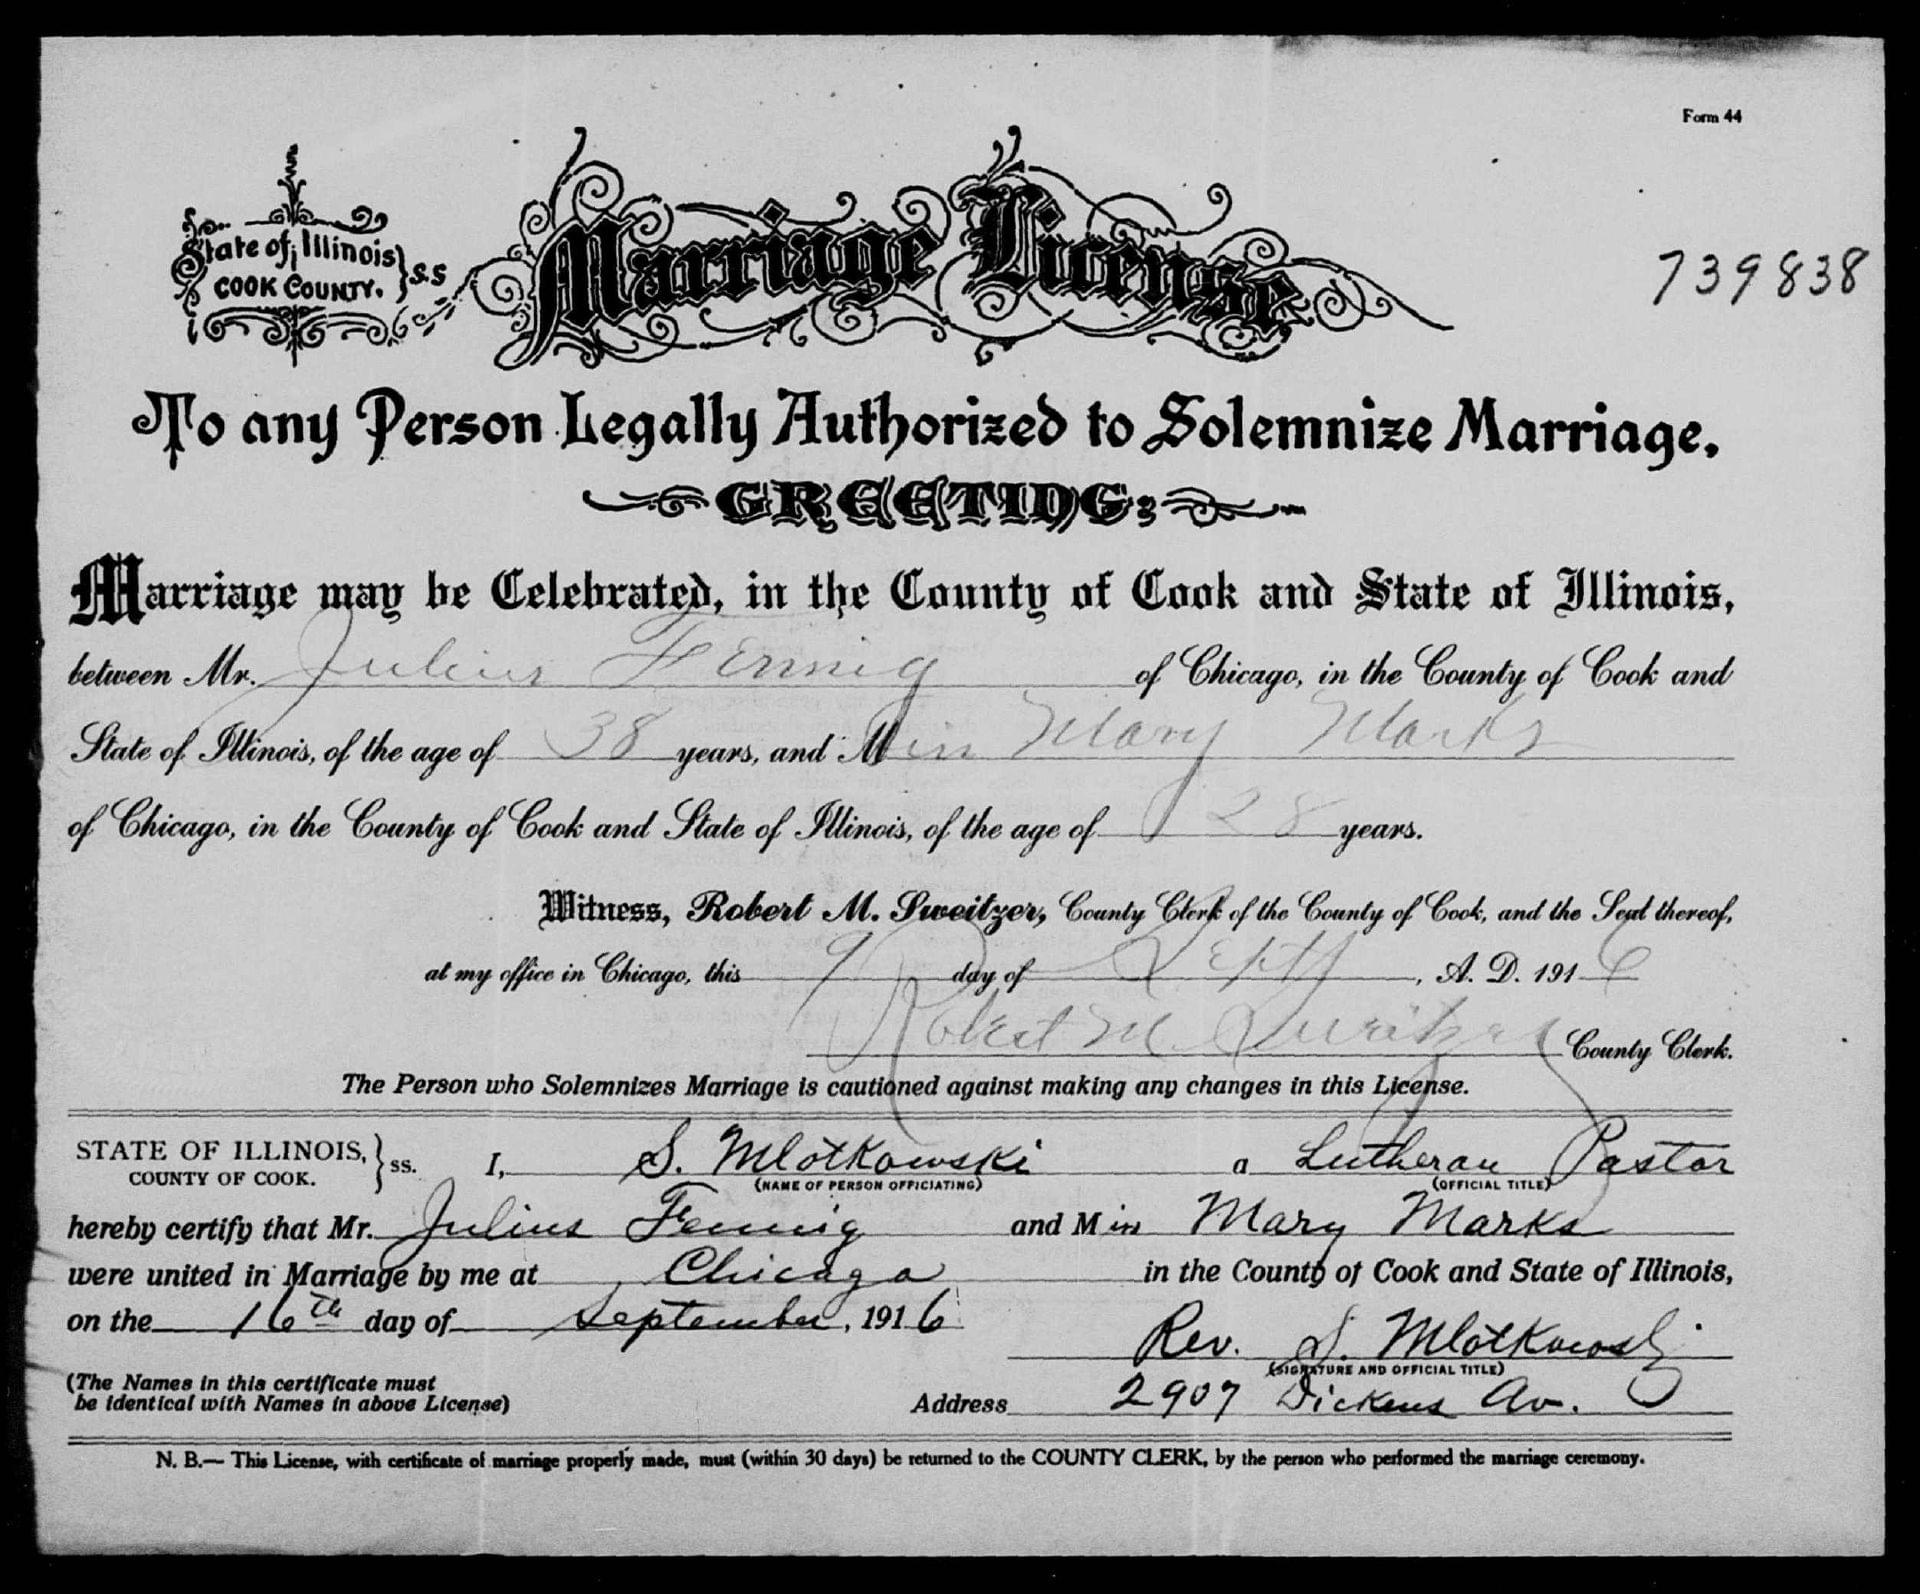 Form 44
State of Illinois
COOK COUNTY. } S.S
Marriage License
739838
To any Person Legally Authorized to Solemnize Marriage,
GREETING:
Marriage may be Celebrated, in the County of Cook and State of Illinois,
between Mr. Julius Fennig of Chicago, in the County of Cook and
State of Illinois, of the age of 38 years, and Miss Mary Marks
of Chicago, in the County of Cook and State of Illinois, of the age of 28 years.
Witness, Robert M. Sweitzer, County Clerk of the County of Cook, and the Seal thereof,
at my office in Chicago, this 9 day of Sept, A. D. 1916
Robert M Sweitzer County Clerk.
The Person who Solemnizes Marriage is cautioned against making any changes in this License.
STATE OF ILLINOIS,
COUNTY OF COOK. } ss. I, S. Mlotkowski a Lutheran Pastor
(NAME OF PERSON OFFICIATING) (OFFICIAL TITLE)
hereby certify that Mr. Julius Fennig and Miss Mary Marks
were united in Marriage by me at Chicago in the County of Cook and State of Illinois,
on the 16th day of September, 1916
Rev. S. Mlotkowski
(SIGNATURE AND OFFICIAL TITLE)
(The Names in this certificate must
be identical with Names in above License)
Address 2907 Dickens Av.
N. B.— This License, with certificate of marriage properly made, must (within 30 days) be returned to the COUNTY CLERK, by the person who performed the marriage ceremony.